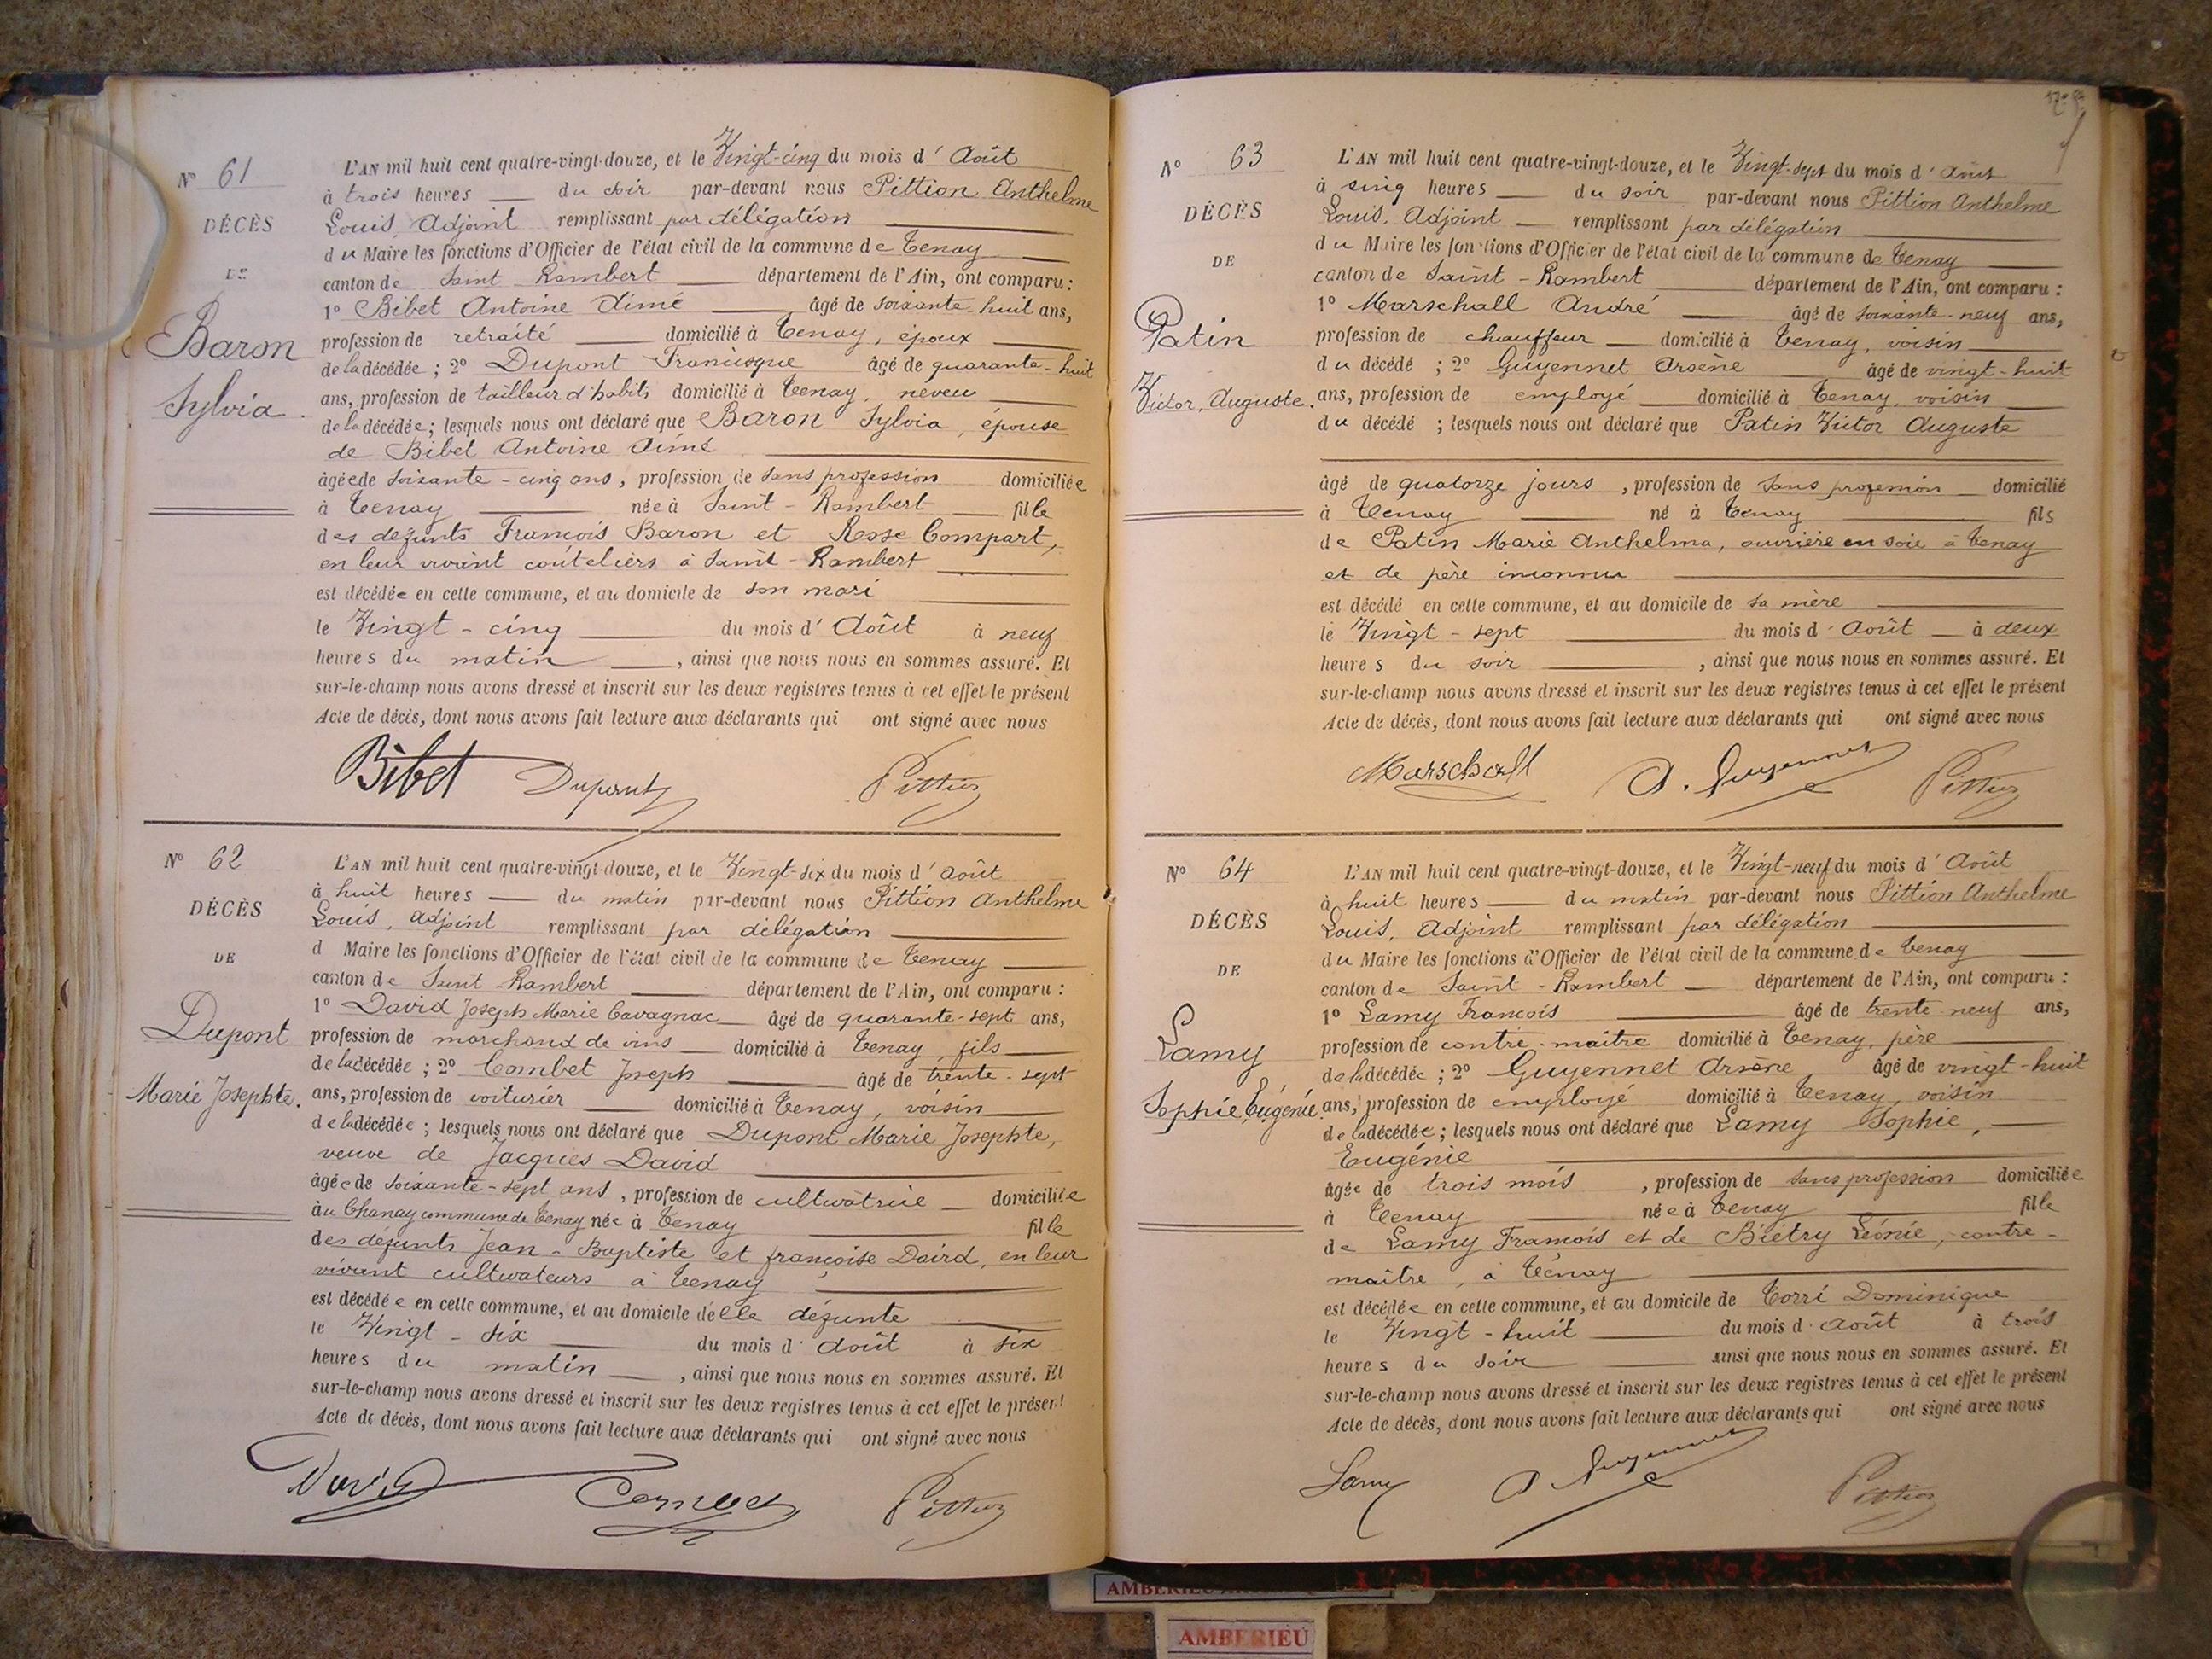 N° 61
DÉCÈS
DE
Baron
Sylvia.
L'AN mil huit cent quatre-vingt-douze, et le Vingt-cinq du mois d' Août
à trois heures du soir par-devant nous Pittion Anthelme
Louis, Adjoint remplissant par délégation
du Maire les fonctions d'Officier de l'état civil de la commune de Tenay
canton de Saint Rambert département de l'Ain, ont comparu :
1° Bibet Antoine Aimé âgé de soixante-huit ans,
profession de retraité domicilié à Tenay, époux
de la décédée ; 2° Dupont Francisque âgé de quarante-huit
ans, profession de tailleur d'habits domicilié à Tenay, neveu
de la décédée ; lesquels nous ont déclaré que Baron Sylvia, épouse
de Bibet Antoine Aimé
âgée de soixante-cinq ans, profession de sans profession domiciliée
à Tenay née à Saint-Rambert fille
des défunts François Baron et Rose Compart,
en leur vivant couteliers à Saint-Rambert
est décédée en cette commune, et au domicile de son mari
le Vingt-cinq du mois d' Août à neuf
heures du matin, ainsi que nous nous en sommes assuré. Et
sur-le-champ nous avons dressé et inscrit sur les deux registres tenus à cet effet le présent
Acte de décès, dont nous avons fait lecture aux déclarants qui ont signé avec nous
Bibet Dupont Pittion
N° 62
DÉCÈS
DE
Dupont
Marie Josephte.
L'AN mil huit cent quatre-vingt-douze, et le Vingt-six du mois d' Août
à huit heures du matin par-devant nous Pittion Anthelme
Louis, adjoint remplissant par délégation
d Maire les fonctions d'Officier de l'état civil de la commune de Tenay
canton de Saint Rambert département de l'Ain, ont comparu :
1° David Joseph Marie Cavagnac âgé de quarante-sept ans,
profession de marchand de vins domicilié à Tenay, fils
de la décédée ; 2° Combet Joseph âgé de trente-sept
ans, profession de voiturier domicilié à Tenay, voisin
de la décédée ; lesquels nous ont déclaré que Dupont Marie Josephte,
veuve de Jacques David
âgée de soixante-sept ans, profession de cultivatrice domiciliée
au Chanay commune de Tenay née à Tenay fille
des défunts Jean-Baptiste et françoise Daird, en leur
vivant cultivateurs à Tenay
est décédée en cette commune, et au domicile de lle défunte
le Vingt-six du mois d' Août à six
heures du matin, ainsi que nous nous en sommes assuré. Et
sur-le-champ nous avons dressé et inscrit sur les deux registres tenus à cet effet le présent
Acte de décès, dont nous avons fait lecture aux déclarants qui ont signé avec nous
David Pittion
N° 63
DÉCÈS
DE
Patin
Victor, Auguste.
L'AN mil huit cent quatre-vingt-douze, et le Vingt-sept du mois d' Août
à sinq heures du soir par-devant nous Pittion Anthelme
Louis, Adjoint remplissant par délégation
du Maire les fonctions d'Officier de l'état civil de la commune de Tenay
canton de Saint-Rambert département de l'Ain, ont comparu :
1° Marschall André âgé de soixante-neuf ans,
profession de chauffeur domicilié à Tenay, voisin
du décédé ; 2° Guyennet Arsène âgé de vingt-huit
ans, profession de employé domicilié à Tenay, voisin
du décédé ; lesquels nous ont déclaré que Patin Victor Auguste
âgé de quatorze jours, profession de sans profession domicilié
à Tenay né à Tenay fils
de Patin Marie Anthelma, ouvrière en soie à Tenay
et de père inconnu
est décédé en cette commune, et au domicile de sa mère
le Vingt-sept du mois d' Août à deux
heures du soir, ainsi que nous nous en sommes assuré. Et
sur-le-champ nous avons dressé et inscrit sur les deux registres tenus à cet effet le présent
Acte de décès, dont nous avons fait lecture aux déclarants qui ont signé avec nous
Marschall A. Guyennet Pittion
N° 64
DÉCÈS
DE
Lamy
Sophie, Eugénie.
L'AN mil huit cent quatre-vingt-douze, et le Vingt-neuf du mois d' Août
à huit heures du matin par-devant nous Pittion Anthelme
Louis, Adjoint remplissant par délégation
du Maire les fonctions d'Officier de l'état civil de la commune de Tenay
canton de Saint-Rambert département de l'Ain, ont comparu :
1° Lamy François âgé de trente neuf ans,
profession de contre-maître domicilié à Tenay, père
de la décédée ; 2° Guyennet Arsène âgé de vingt-huit
ans, profession de employé domicilié à Tenay, voisin
de la décédée ; lesquels nous ont déclaré que Lamy Sophie,
Eugénie
âgée de trois mois, profession de sans profession domiciliée
à Tenay née à Tenay fille
de Lamy François et de Biétry Léonie, contre-
maître, à Tenay
est décédée en cette commune, et au domicile de Torri Dominique
le Vingt-huit du mois d' Août à trois
heures du soir ainsi que nous nous en sommes assuré. Et
sur-le-champ nous avons dressé et inscrit sur les deux registres tenus à cet effet le présent
Acte de décès, dont nous avons fait lecture aux déclarants qui ont signé avec nous
Lamy A Guyennet Pittion
AMBERIEU
AMBERIEU